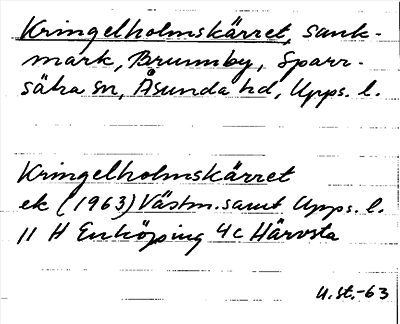 Kringelholmskärret, sank-
mark, Brunnby, Sparr-
sätra sn, Åsunda hd, Upps. l.
Kringelholmskärret
ek (1963) Västm. samt Upps. l.
11 H Enköping 4c Härvsta
U.st.-63